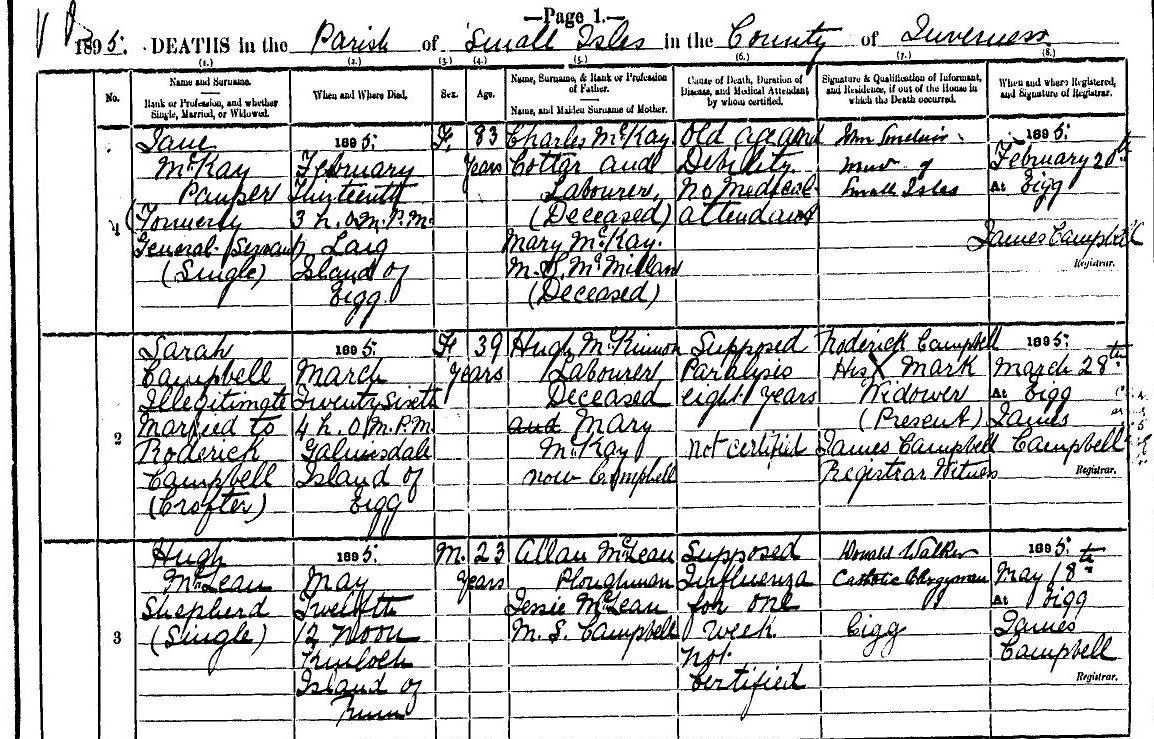 —Page 1.—
1895. DEATHS in the Parish of Small Isles in the County of Inverness
(1.) (2.) (3.) (4.) (5.) (6.) (7.) (8.)
No.
Name and Surname.
Rank or Profession, and whether
Single, Married, or Widowed.
When and Where Died.
Sex.
Age.
Name, Surname, & Rank or Profession
of Father.
Name, and Maiden Surname of Mother.
Cause of Death, Duration of
Disease, and Medical Attendant
by whom certified.
Signature & Qualification of Informant,
and Residence, if out of the House in
which the Death occurred.
When and where Registered,
and Signature of Registrar.
1
Jane
McKay
Pauper
(Formerly
General Servant)
(Single)
1895.
February
3 h. 0 m. P.M.
Laig
Island of
Eigg.
F.
83
Years
Charles McKay
Cottar and
Labourer,
(Deceased)
Mary McKay.
M.S. McMillan
(Deceased)
Old age and
Debility.
No Medical
attendant
John Sinclair
Minr of
Small Isles
1895.
February 20th
At Eigg
James Campbell
Registrar.
2
Sarah
Campbell
Illegitimate
Married to
Roderick
Campbell
(Crofter)
1895.
March
Twenty Sixth
4 h. 0 m. P.M.
Galmisdale
Island of
Eigg
F.
39
Years
Hugh McKinnon
Labourer,
Deceased
and Mary
McKay
now Campbell
Supposed
Paralysis
eight years
Not certified
Roderick Campbell
His X Mark
Widower
(Present)
James Campbell
Registrar Witness
1895.
March 28th
At Eigg
James
Campbell
Registrar.
3
Hugh
McLean
Shepherd
(Single)
1895.
May
Twelfth
12 noon
Kinloch
Island of
Rum
M.
23
Years
Allan McLean
Ploughman
Jessie McLean
M.S. Campbell
Supposed
Influenza
for one
week.
Not
Certified
Donald Walker
Catholic Clergyman
Eigg
1895.
May 18th
At Eigg
James
Campbell
Registrar.